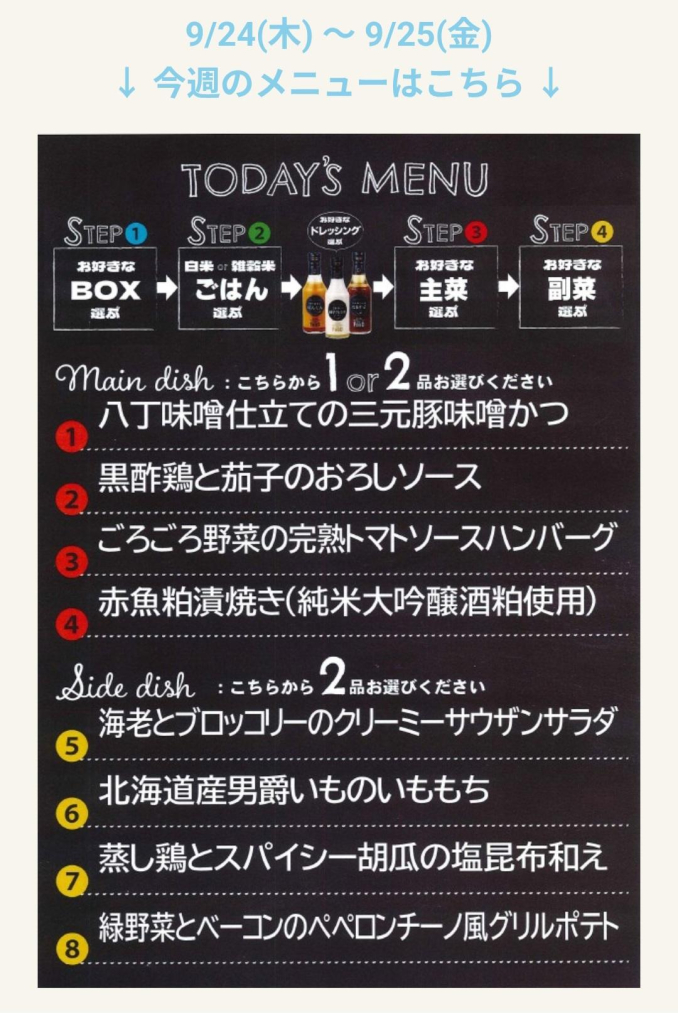 9/24(木) ～ 9/25(金)
↓ 今週のメニューはこちら ↓
TODAY'S MENU
STEP 1
お好きな
BOX
選ぶ
STEP 2
白米 or 雑穀米
ごはん
選ぶ
お好きな
ドレッシング
選ぶ
STEP 3
お好きな
主菜
選ぶ
STEP 4
お好きな
副菜
選ぶ
Main dish : こちらから 1 or 2 品お選びください
1 八丁味噌仕立ての三元豚味噌かつ
2 黒酢鶏と茄子のおろしソース
3 ごろごろ野菜の完熟トマトソースハンバーグ
4 赤魚粕漬焼き(純米大吟醸酒粕使用)
Side dish : こちらから 2 品お選びください
5 海老とブロッコリーのクリーミーサウザンサラダ
6 北海道産男爵いものいももち
7 蒸し鶏とスパイシー胡瓜の塩昆布和え
8 緑野菜とベーコンのペペロンチーノ風グリルポテト